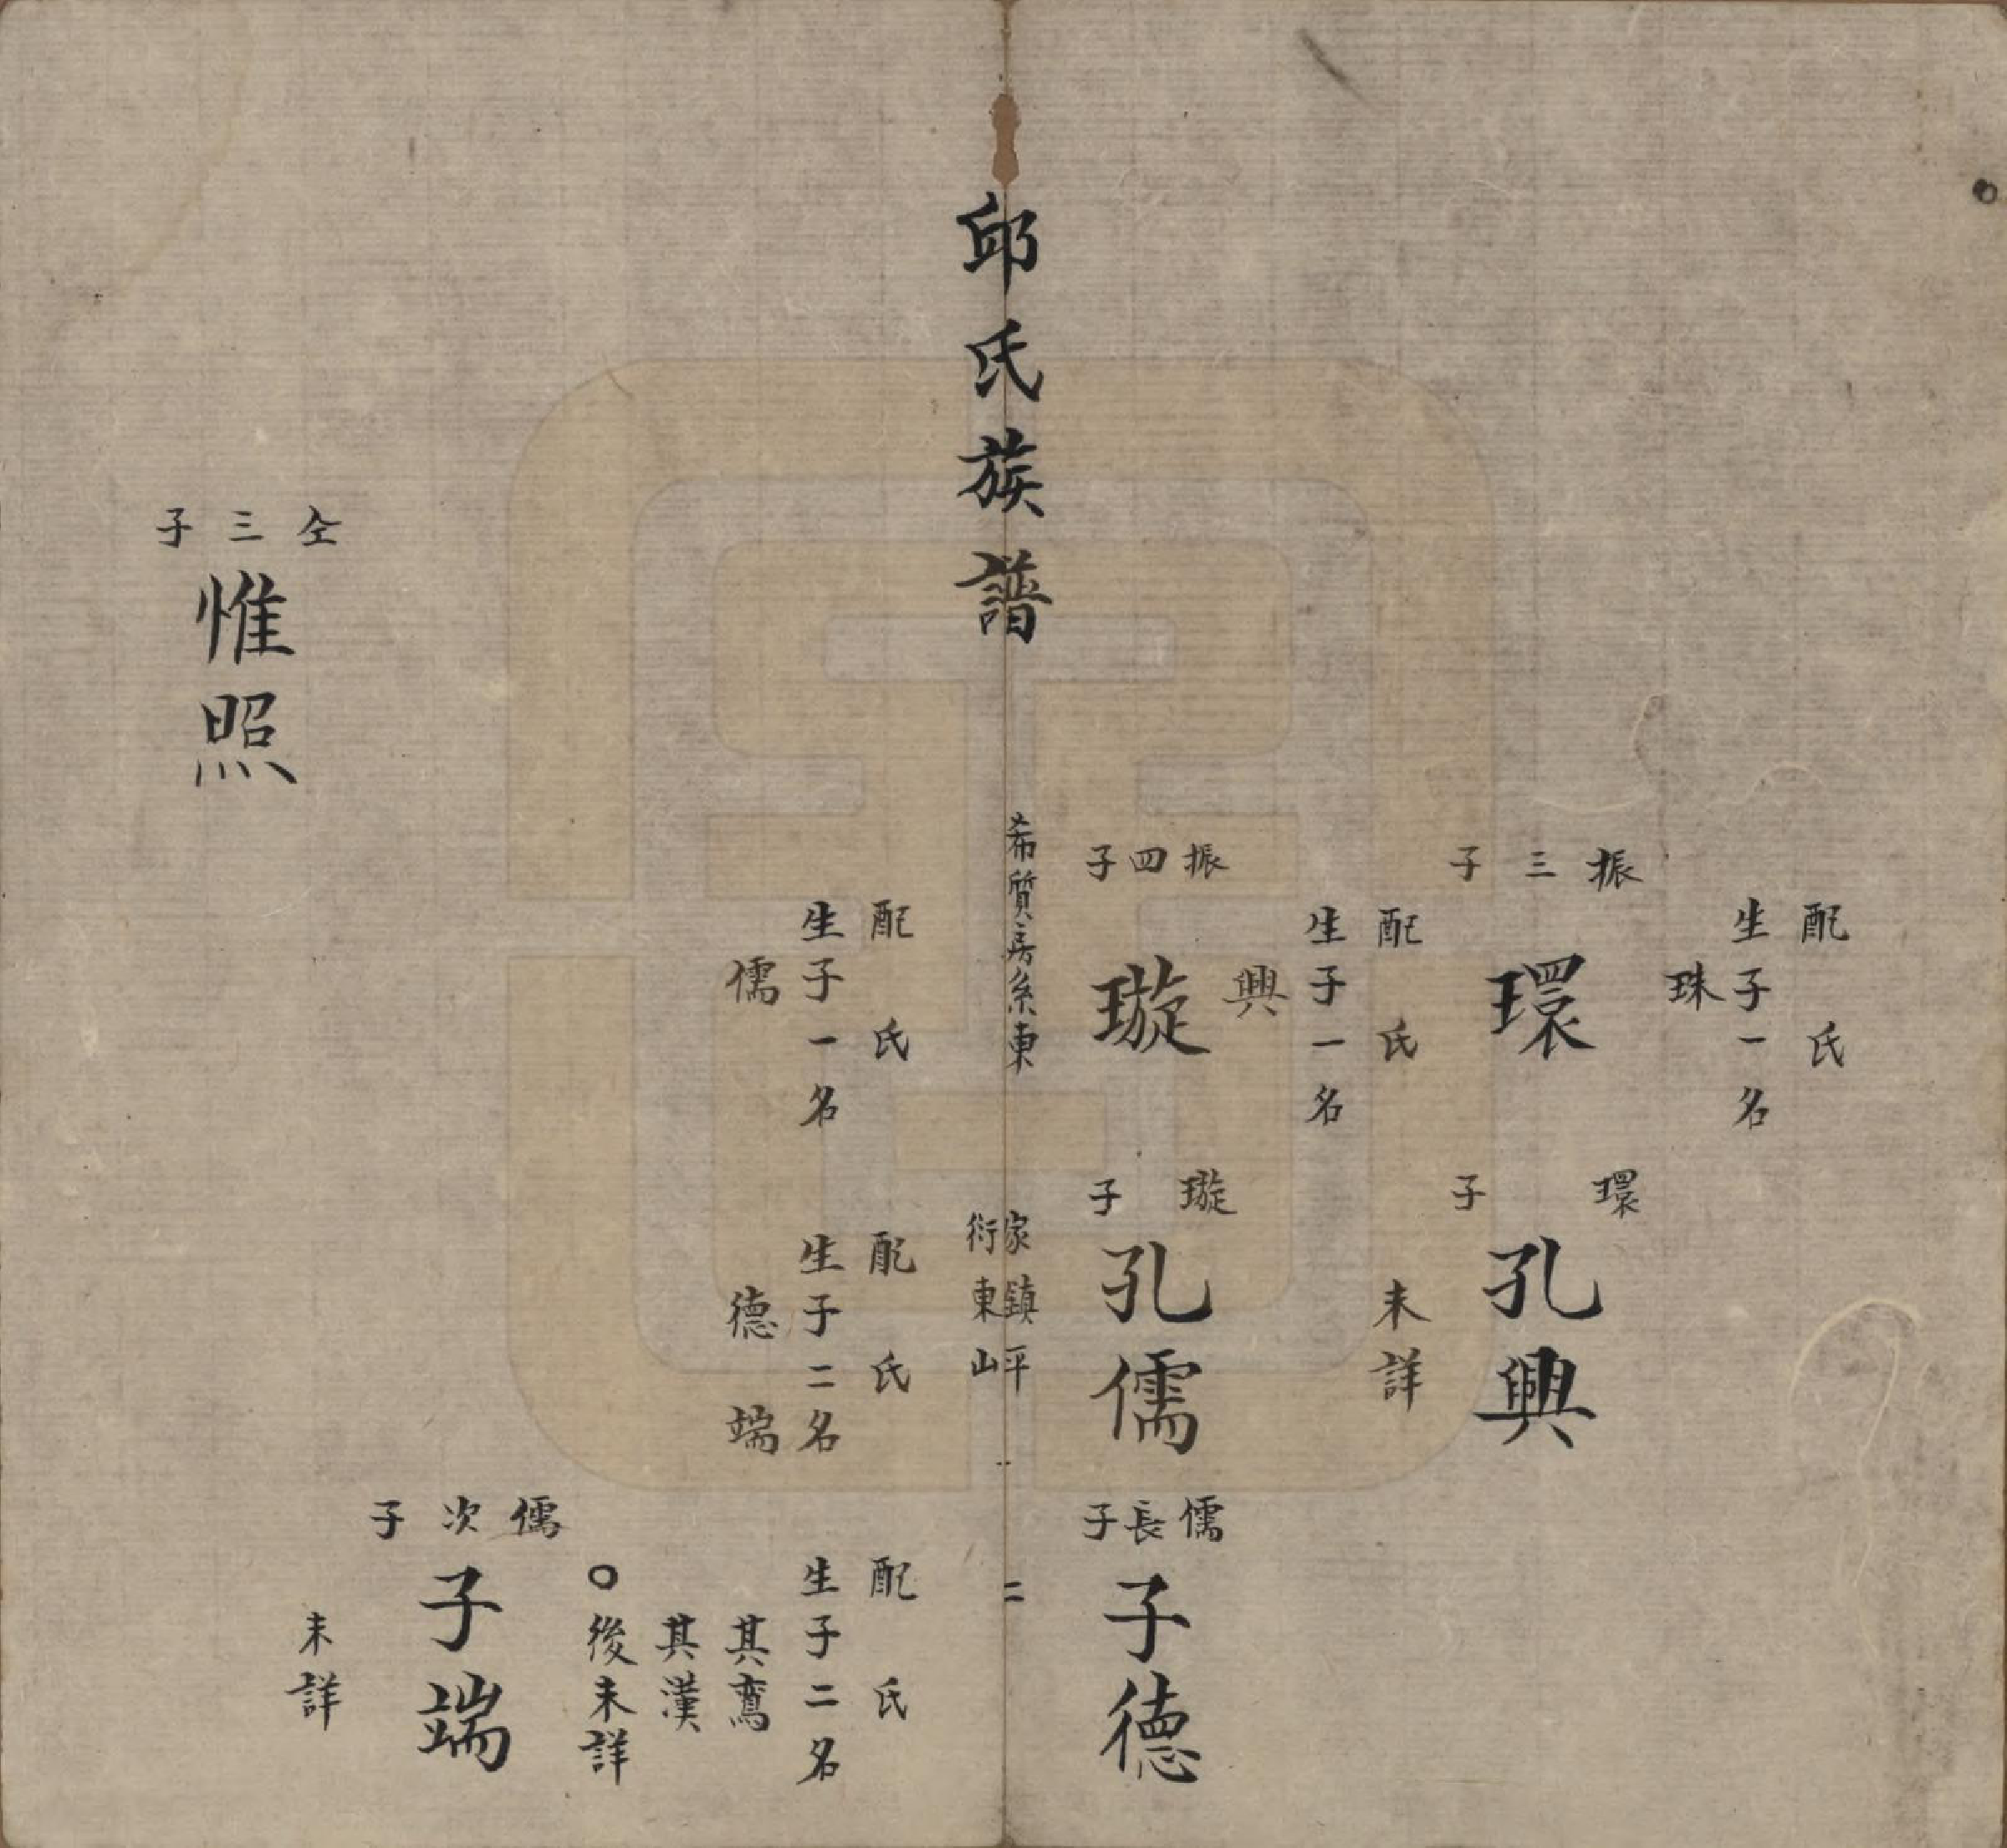 配氏
生子一名
珠
振三子
環
配氏
生子一名
興
環子
孔興
未詳
振四子
璇
璇子
孔儒
儒長子
子德
邱氏族譜
希質房系東
家鎮平
衍東山
二
配氏
生子一名
儒
配氏
生子二名
德端
配氏
生子二名
其鸞
其漢
〇後未詳
儒次子
子端
未詳
仝三子
惟照